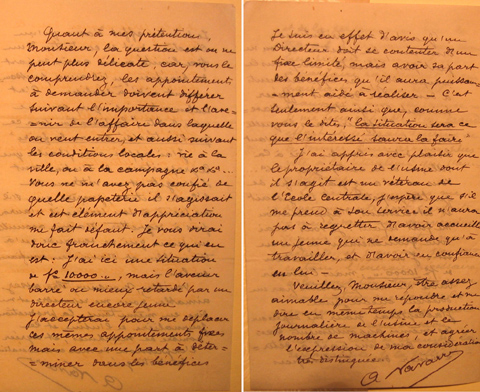 Quant à mes prétentions,
Monsieur, la question est on ne
peut plus délicate, car, vous le
comprendrez, les appointements
à demander doivent différer
suivant l'importance et l'ave-
-nir de l'affaire dans laquelle
on veut entrer, et aussi suivant
les conditions locales : vie à la
ville, ou à la campagne &c &c...
Vous ne m'avez pas confié de
quelle papeterie il s'agissait
et cet élément d'appréciation
me fait défaut. Je vous dirai
donc franchement ce qui en
est : J'ai ici une situation
de 10000, mais l'avenir
barré ou mieux retardé par un
Directeur encore jeune.
J'accepterai pour me déplacer
ces mêmes appointements fixes
mais avec une part à déter-
-miner dans les bénéfices
Je suis en effet d'avis qu'un
Directeur doit se contenter d'un
fixe limité, mais avoir sa part
des bénéfices qu'il aura puissam-
-ment aidé à réaliser — C'est
seulement ainsi que, comme
vous le dites, "la situation sera ce
que l'intéressé saura la faire"
J'ai appris avec plaisir que
le propriétaire de l'usine dont
il s'agit est un vétéran de
l'Ecole Centrale, j'espère que s'il
me prend à son service il n'aura
pas à regretter d'avoir accueilli
un jeune qui ne demande qu'à
travailler, et d'avoir eu confiance
en lui —
Veuillez, Monsieur, être assez
aimable pour me répondre et me
dire en même temps la production
journalière de l'usine et le
nombre de machines, et agréer
l'expression de ma considération
très distinguée